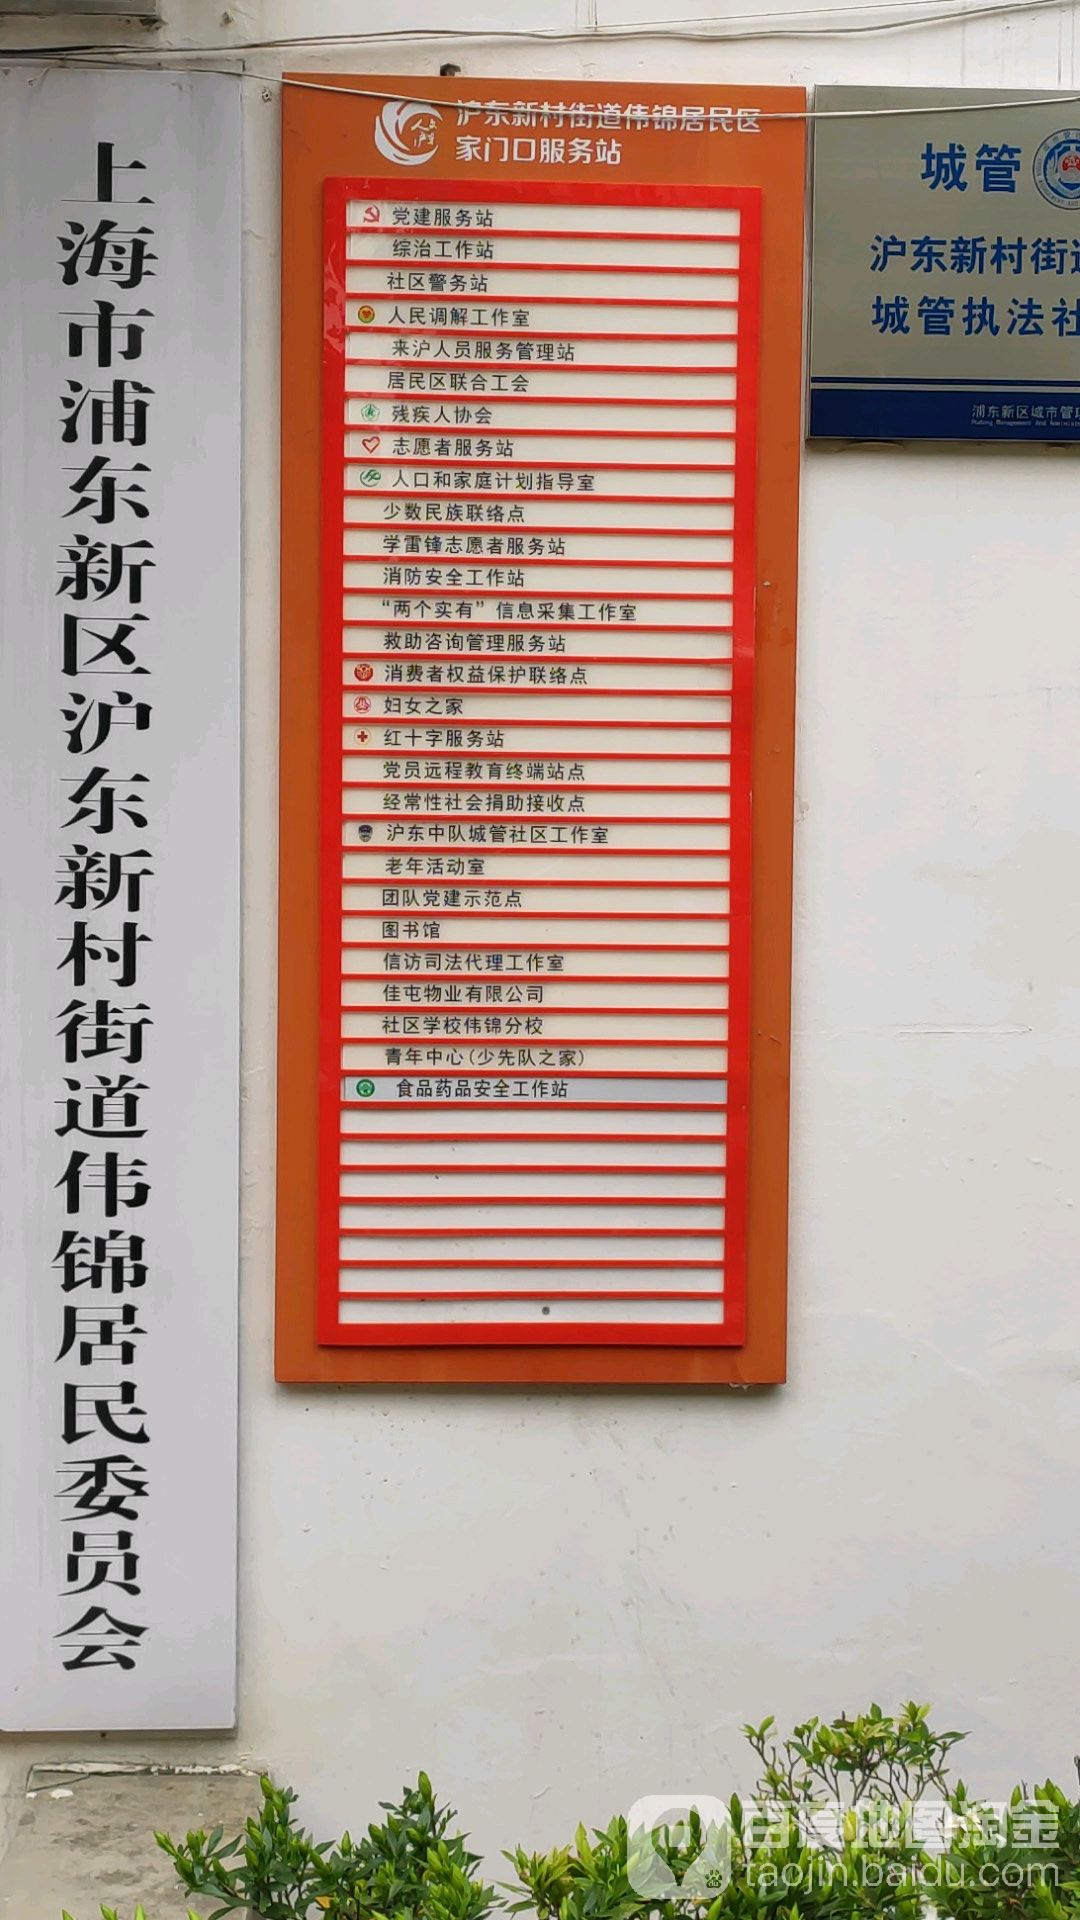 上海市浦东新区沪东新村街道伟锦居民委员会
沪东新村街道伟锦居民区
家门口服务站
党建服务站
综治工作站
社区警务站
人民调解工作室
来沪人员服务管理站
居民区联合工会
残疾人协会
志愿者服务站
人口和家庭计划指导室
少数民族联络点
学雷锋志愿者服务站
消防安全工作站
“两个实有”信息采集工作室
救助咨询管理服务站
消费者权益保护联络点
妇女之家
红十字服务站
党员远程教育终端站点
经常性社会捐助接收点
沪东中队城管社区工作室
老年活动室
团队党建示范点
图书馆
信访司法代理工作室
佳屯物业有限公司
社区学校伟锦分校
青年中心(少先队之家)
食品药品安全工作站
城管
沪东新村街道
城管执法社
浦东新区城市管理
百度地图淘金
taojin.baidu.com